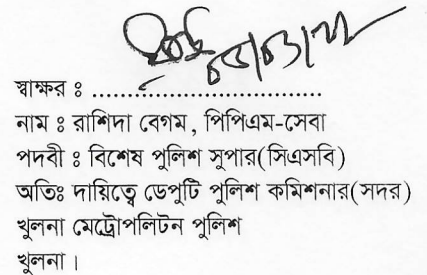 স্বাক্ষর ঃ ................................
নাম ঃ রাশিদা বেগম, পিপিএম-সেবা
পদবী ঃ বিশেষ পুলিশ সুপার(সিএসবি)
অতিঃ দায়িত্বে ডেপুটি পুলিশ কমিশনার(সদর)
খুলনা মেট্রোপলিটন পুলিশ
খুলনা।